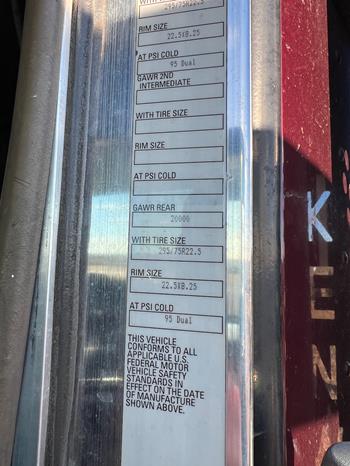 WITH TIRE SIZE
295/75R22.5
RIM SIZE
22.5X8.25
AT PSI COLD
95 Dual
GAWR 2ND
INTERMEDIATE
WITH TIRE SIZE
RIM SIZE
AT PSI COLD
GAWR REAR
20000
WITH TIRE SIZE
295/75R22.5
RIM SIZE
22.5X8.25
AT PSI COLD
95 Dual
THIS VEHICLE
CONFORMS TO ALL
APPLICABLE U.S.
FEDERAL MOTOR
VEHICLE SAFETY
STANDARDS IN
EFFECT ON THE DATE
OF MANUFACTURE
SHOWN ABOVE.
K
E
N